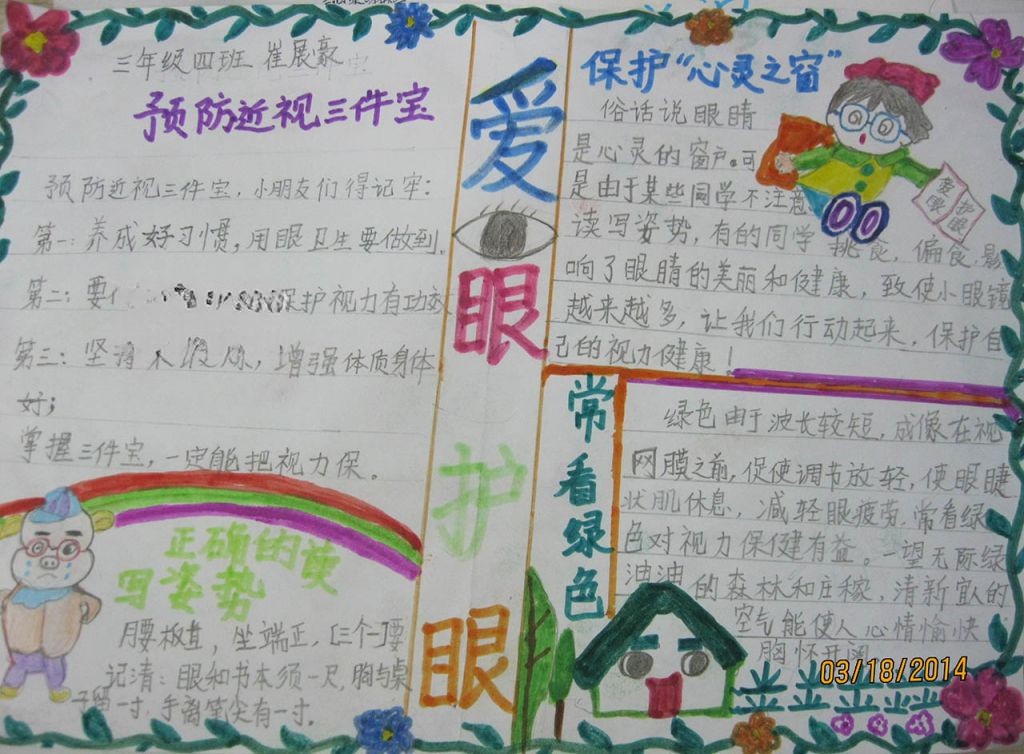 三年级四班 崔展豪
预防近视三件宝
预防近视三件宝，小朋友们得记牢：
第一：养成好习惯，用眼卫生要做到。
第二：要 保护视力有功效
第三：坚 ，增强体质身体
好；
掌握三件宝，一定能把视力保。
正确的读
写姿势
腰板直，坐端正，三个一要
记清：眼和书本须一尺，胸与桌
子留一寸，手离笔尖有一寸。
爱
眼
护
眼
保护“心灵之窗”
俗话说眼睛
是心灵的窗户。可
是由于某些同学不注意
读写姿势，有的同学挑食，偏食，影
响了眼睛的美丽和健康，致使小眼镜
越来越多，让我们行动起来，保护自
己的视力健康！
爱眼
护眼
常
看
绿
色
绿色由于波长较短，成像在视
网膜之前，促使调节放轻，使眼睫
状肌休息，减轻眼疲劳。常看绿
色对视力保健有益。一望无际绿
油油的森林和庄稼，清新宜人的
空气能使人心情愉快
胸怀开阔
03/18/2014